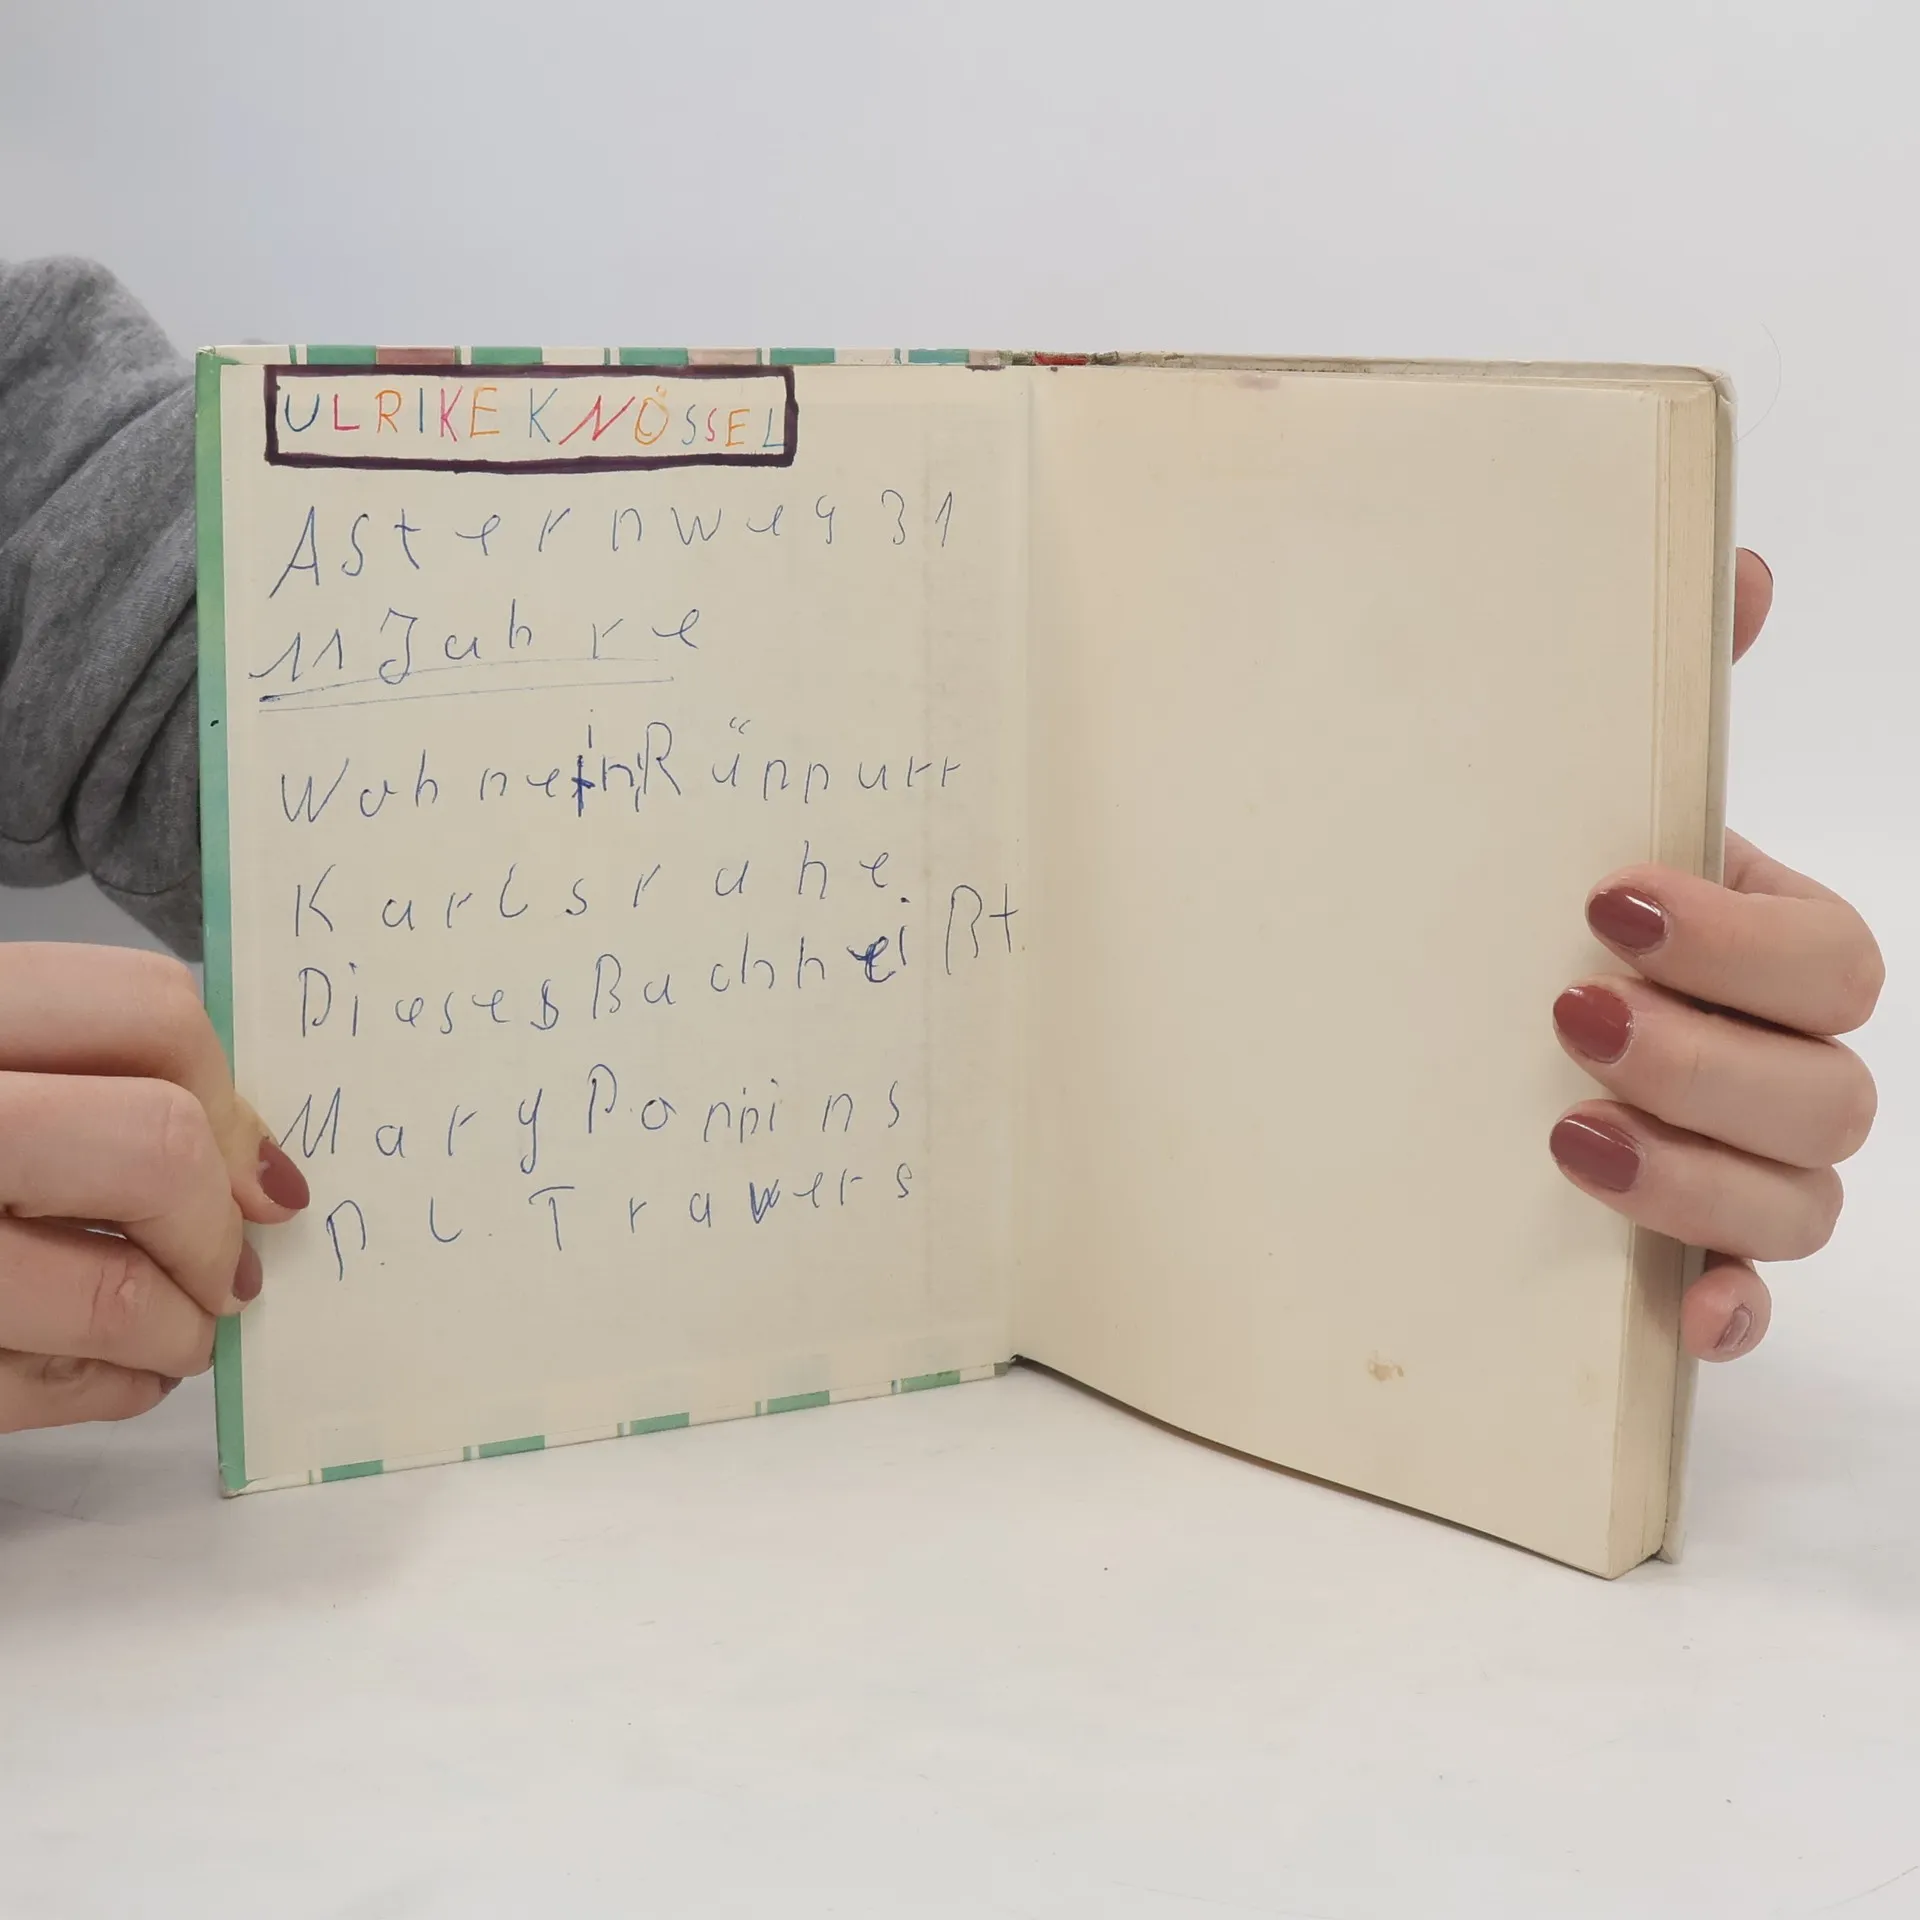 ULRIKE KNÖSSEL
Asternweg 31
11 Jahre
Wohne in Rüppurr
Karlsruhe
Dieses Buch heißt
Mary Poppins
P. L. Trawers